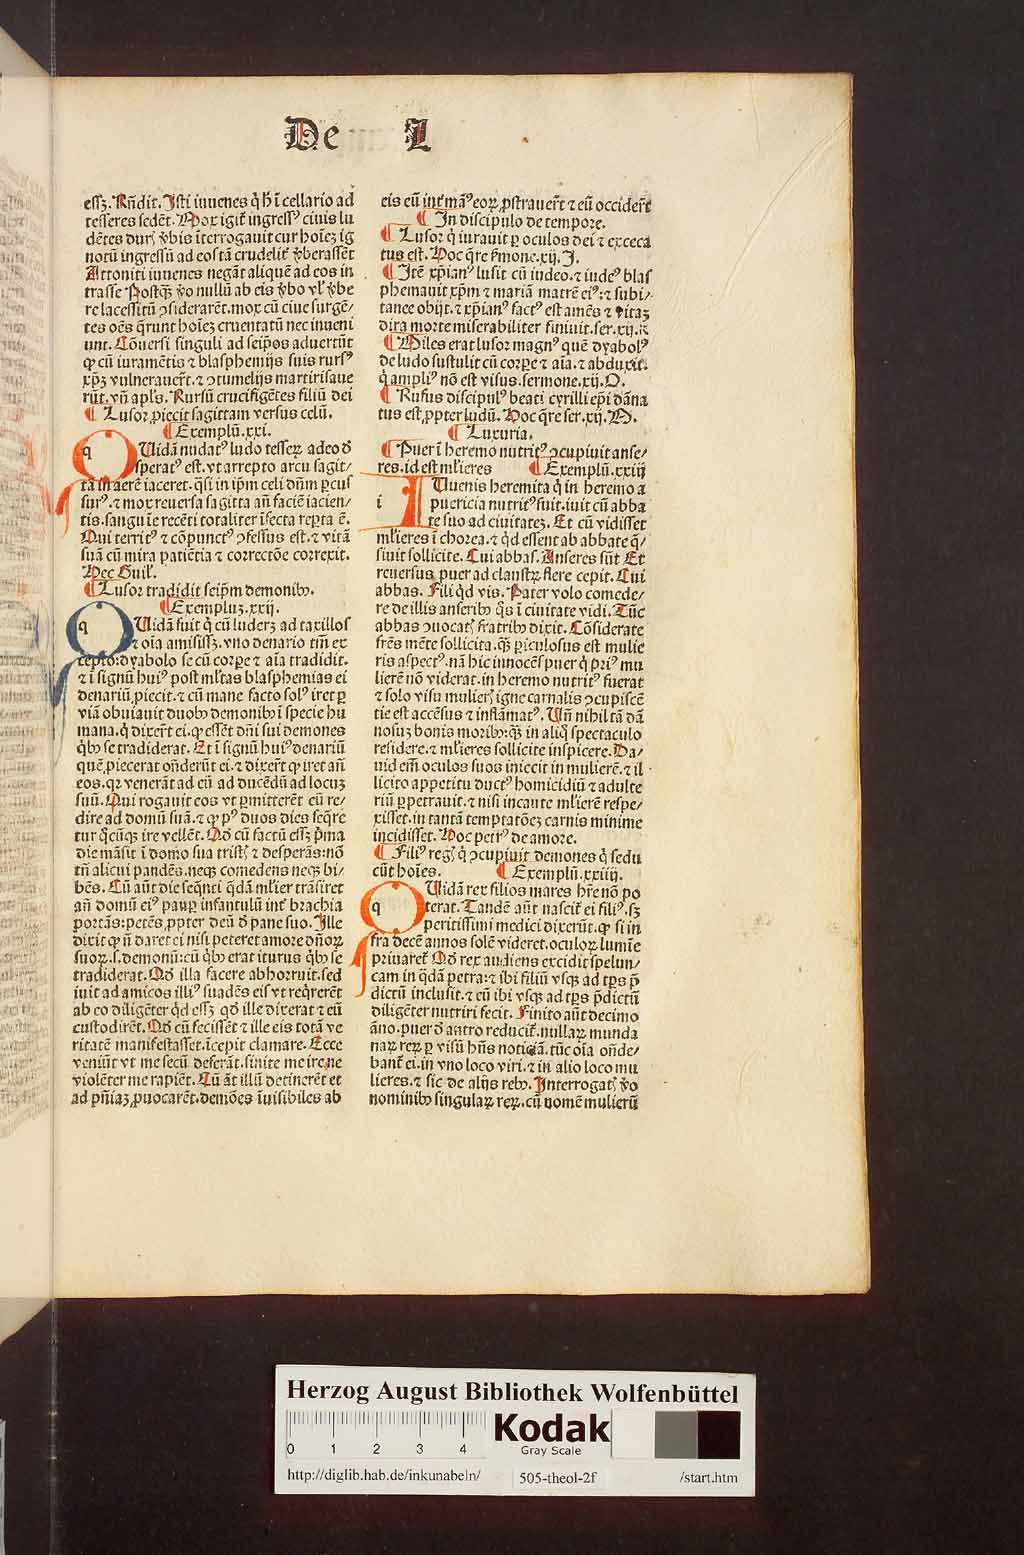 De L
essꝫ. Rñdit. Isti iuuenes q̇ hͥ ī cellario ad
tesseres sedēt. Mox igit̄ ingressꝰ ciuis lu
dētes durꝭ v̄bis īterrogauit cur hoīeꝫ ig
notū ingressū ad eos tā crudelit̄ v̄berassēt
Attoniti iuuenes negāt aliquē ad eos in
trasse Postq̄ꝫ v̄o nullū ab eis v̄bo vl̓ v̄be
re lacessitū ꝯsiderarēt. mox cū ciue surgē-
tes oēs q̄runt hoīeꝫ cruentatū nec inueni
unt. Cōuersi singuli ad seip̄os aduertūt
ꝙ cū iuramētis ⁊ blasphemijs suis rursꝰ
xp̄ꝫ vulnerauer̄t. ⁊ ꝯtumelijs martirisaue
rūt. vn̄ apl̓s. Rursū crucifigētes filiū dei
¶ Lusor ꝓiecit sagittam versus celū.
¶ Exemplū. xxi.
q Uidā nudatꝰ ludo tesserꝝ adeo d̄
speratꝰ est. vt arrepto arcu sagit-
tā in aerē iaceret. q̄si in ip̄m celi dn̄m ꝑcus
surꝰ. ⁊ mox reuersa sagitta an̄ faciē iacien-
tis. sanguīe recēti totaliter īfecta reꝑta ē.
Qui territꝰ ⁊ cōpunctꝰ ꝯfessus est. ⁊ vitā
suā cū mira patiētia ⁊ correctōe correxit.
Hec Guil̓.
¶ Lusor tradidit seip̄m demonibꝫ.
¶ Exempluꝫ. xxij.
q Uidā fuit q̇ cū luderꝫ ad taxillos
⁊ oīa amisissꝫ. vno denario tm̄ ex
cepto: dyabolo se cū corꝑe ⁊ aīa tradidit.
⁊ ī signū huiꝰ post ml̓tas blasphemias ei
denariū ꝓiecit. ⁊ cū mane facto solꝰ iret ꝑ
viā obuiauit duobꝫ demonibꝫ ī specie hu
mana. q̇ dixer̄t ei. ꝙ essēt dn̄i sui demones
q̇bꝫ se tradiderat. Et ī signū huiꝰ denariū
quē ꝓiecerat on̄derūt ei. ⁊ dixer̄t ꝙ iret an̄
eos. qꝛ venerāt ad eū ad ducēdū ad locuꝫ
suū. Qui rogauit eos vt ꝑmitterēt eū re-
dire ad domū suā. ⁊ ꝙ pꝰ duos dies seq̄re
tur q̇cūqꝫ ire vellēt. Qd̓ cū factū essꝫ p̄ma
die māsit ī domo sua tristꝭ ⁊ desperās: nō
tn̄ alicui pandēs. neqꝫ comedens neqꝫ bi-
bēs. Cū aūt die seq̄nti q̄dā ml̓ier trāsiret
an̄ domū eiꝰ pauꝑ infantulū int̄ brachia
portās: petēs ꝓpter deū d̄ pane suo. Ille
dixit ꝙ n̄ daret ei nisi peteret amore dn̄oꝝ
suoꝝ. s. demonū: cū q̇bꝫ erat iturus q̇bꝫ se
tradiderat. Qd̓ illa facere abhorruit. sed
iuit ad amicos illiꝰ suadēs eis vt req̇rerēt
ab eo diligēter q̇d essꝫ qd̓ ille dixerat ⁊ eū
custodirēt. Qd̓ cū fecissēt ⁊ ille eis totā ve
ritatē manifestasset. īcepit clamare. Ecce
veniūt vt me secū deferāt. sinite me ire. ne
violēter me rapiēt. Cū āt illū detinerēt et
ad pn̄iaꝫ ꝓuocarēt. demōes īuisibiles ab
eis eū int̄ manꝰ eoꝝ ꝓstrauer̄t ⁊ eū occider̄t
¶ In discipulo de tempore.
¶ Lusor q̇ iurauit ꝑ oculos dei ⁊ exceca
tus est. Hoc q̄re s̄mone. xij. J.
¶ Itē xp̄ianꝰ lusit cū iudeo. ⁊ iudeꝰ blas
phemauit xp̄m ⁊ mariā matrē eiꝰ: ⁊ subi-
tanee obijt. ⁊ xp̄ianꝰ factꝰ est amēs ⁊ vitaꝫ
dira morte miserabiliter finiuit. ser. xij. K
¶ Miles erat lusor magnꝰ quē dyabolꝰ
de ludo sustulit cū corꝑe ⁊ aīa. ⁊ abduxit.
q̇ ampliꝰ nō est visus. sermone. xij. O.
¶ Rufus discipulꝰ beati cyrilli ep̄i dāna
tus est ꝓpter ludū. Hoc q̄re ser. xij. M.
¶ Luxuria.
¶ Puer ī heremo nutritꝰ ꝯcupiuit anse-
res. id est ml̓ieres ¶ Exemplū. xxiij
i Uuenis heremita q̇ in heremo a
puericia nutritꝰ fuit. iuit cū abba
te suo ad ciuitateꝫ. Et cū vidisset
ml̓ieres ī chorea. ⁊ q̇d essent ab abbate q̄-
siuit sollicite. Cui abbas. Anseres sūt Et
reuersus puer ad claustꝝ flere cepit. Cui
abbas. Fili q̇d vis. Pater volo comede-
re de illis anseribꝫ q̄s ī ciuitate vidi. Tūc
abbas ꝯuocatꝭ fratribꝫ dixit. Cōsiderate
frēs mēte sollicita. q̄ꝫ ꝑiculosus est mulie
ris aspectꝰ. nā hic innocēs puer q̇ priꝰ mu
lierē nō viderat. in heremo nutritꝰ fuerat
⁊ solo visu mulierꝭ igne carnalis ꝯcupiscē
tie est accēsus ⁊ inflāmatꝰ. Un̄ nihil tā dā
nosuꝫ bonis moribꝫ: q̄ꝫ in aliq̇ spectaculo
residere. ⁊ ml̓ieres sollicite inspicere. Da-
uid em̄ oculos suos iniecit in mulierē. ⁊ il
licito appetitu ductꝰ homicidiū ⁊ adulte
riū ꝑpetrauit. ⁊ nisi incaute ml̓ierē respe-
xisset. in tantā temptatōeꝫ carnis minime
incidisset. Hoc petrꝰ de amore.
¶ Filiꝰ regꝭ q̇ ꝯcupiuit demones q̇ sedu
cūt hoīes. ¶ Exemplū. xxiiij.
q Uidā rex filios mares hr̄e nō po
terat. Tandē aūt nascit̄ ei filiꝰ. sꝫ
peritissimi medici dixerūt. ꝙ si in
fra decē annos solē videret. oculoꝝ lumīe
priuaret̄ Qd̓ rex audiens excidit spelun-
cam in q̄dā petra: ⁊ ibi filiū vsqꝫ ad tp̄s p̄
dictū inclusit. ⁊ eū ibi vsqꝫ ad tp̄s p̄dictū
diligēter nutriri fecit. Finito aūt decimo
āno. puer d̄ antro reducit̄. nullaꝝ munda
naꝝ reꝝ ꝑ visū hn̄s noticiā. tūc oīa on̄de-
bant̄ ei. in vno loco viri. ⁊ in alio loco mu
lieres. ⁊ sic de alijs rebꝫ. Interrogatꝭ v̄o
nominibꝫ singulaꝝ reꝝ. cū nomē mulierū
Herzog August Bibliothek Wolfenbüttel
0 1 2 3 4
Kodak
Gray Scale
http://diglib.hab.de/inkunabeln/ 505-theol-2f /start.htm